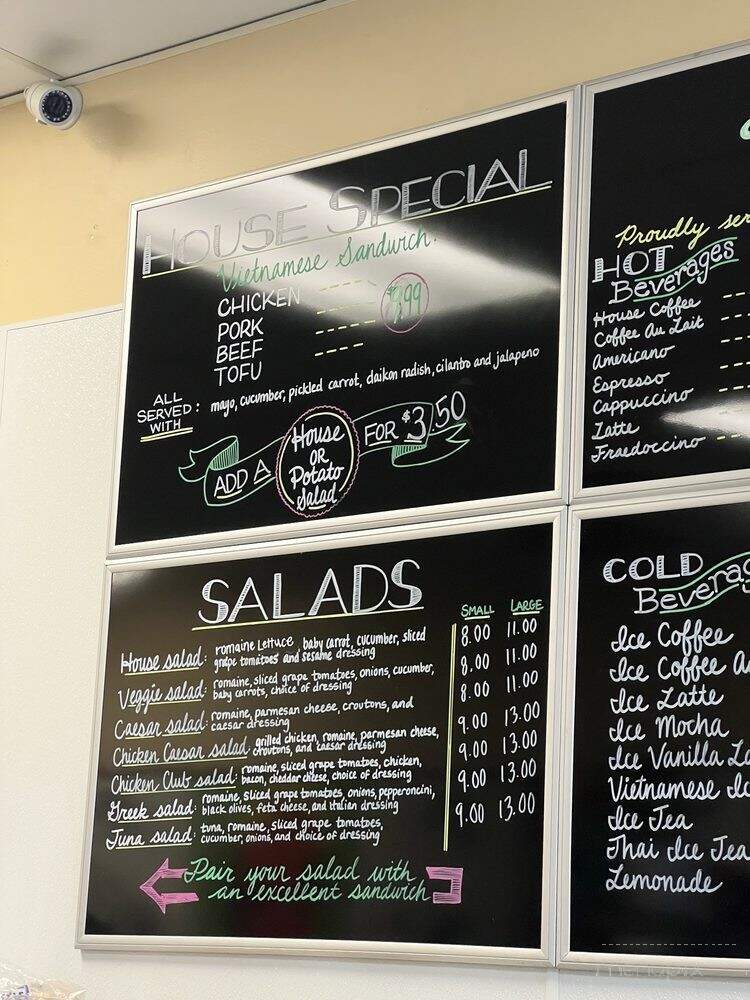 HOUSE SPECIAL
Vietnamese Sandwich.
CHICKEN
PORK
BEEF
TOFU
ALL
SERVED :
WITH
mayo, cucumber, pickled carrot, daikon radish, cilantro and jalapeño
ADD A
House
OR
Potato
Salad
FOR $3.50
SALADS
SMALL LARGE
House salad: romaine lettuce, baby carrot, cucumber, sliced
grape tomatoes and sesame dressing
8.00 11.00
Veggie salad: romaine, sliced grape tomatoes, onions, cucumber,
baby carrots, choice of dressing
8.00 11.00
Caesar salad: romaine, parmesan cheese, croutons, and
caesar dressing
8.00 11.00
Chicken Caesar salad: grilled chicken, romaine, parmesan cheese,
croutons, and caesar dressing
9.00 13.00
Chicken Club salad: romaine, sliced grape tomatoes, chicken,
bacon, cheddar cheese, choice of dressing
9.00 13.00
Greek salad: romaine, sliced grape tomatoes, onions, pepperoncini,
black olives, feta cheese, and italian dressing
9.00 13.00
Tuna salad: tuna, romaine, sliced grape tomatoes,
cucumber, onions, and choice of dressing
9.00 13.00
Pair your salad with
an excellent sandwich
Proudly ser
HOT
Beverages
House Coffee
Coffee Au Lait
Americano
Espresso
Cappuccino
Latte
Fraedoccino
COLD
Beverag
Ice Coffee
Ice Coffee Au
Ice Latte
Ice Mocha
Ice Vanilla La
Vietnamese Ic
Ice Tea
Thai Ice Tea
Lemonade